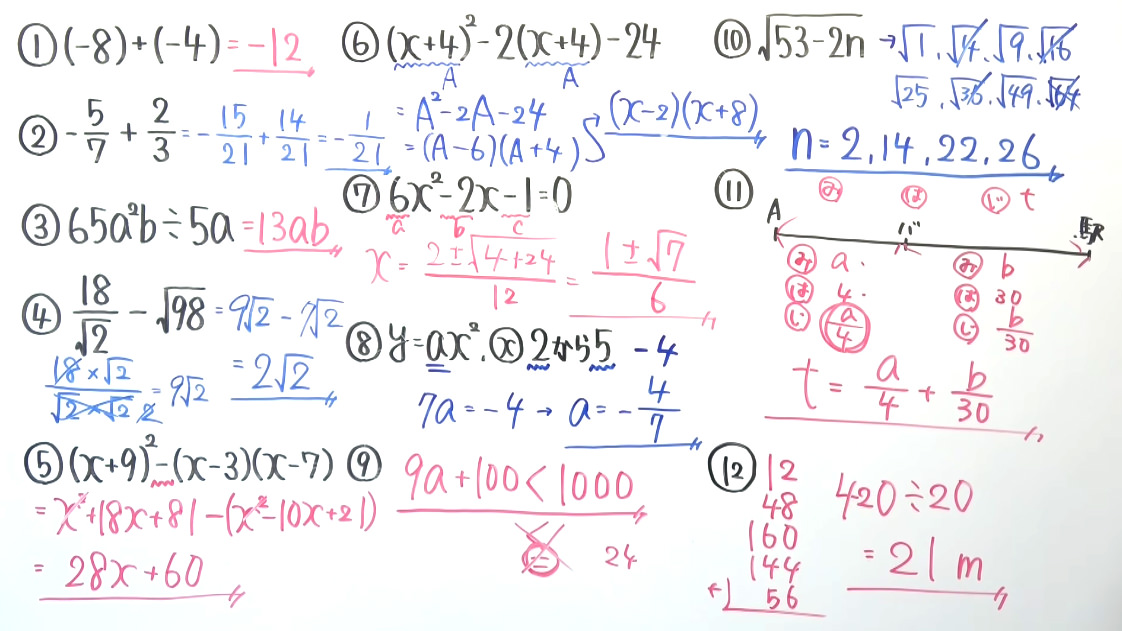 ①(-8)+(-4)=-12
②-5/7+2/3=-15/21+14/21=-1/21
③65a²b÷5a=13ab
④18/√2-√98=9√2-7√2
=2√2
18×√2/√2×√2 2=9√2
⑤(x+9)²-(x-3)(x-7)
=x²+18x+81-(x²-10x+21)
=28x+60
⑥(x+4)²-2(x+4)-24
A A
=A²-2A-24
=(A-6)(A+4)
(x-2)(x+8)
⑦6x²-2x-1=0
a b c
x=2±√4+24/12=1±√7/6
⑧y=ax².ⓧ2から5 -4
7a=-4→a=-4/7
⑨9a+100<1000
≦ 24
⑩√53-2n→√1.√4.√9.√16
√25.√36.√49.√64
n=2,14,22,26
⑪ み は じ t
A バ 駅
み a み b
は 4 は 30
じ a/4 じ b/30
t=a/4+b/30
⑫12
48
160
144
+) 56
420÷20
=21m